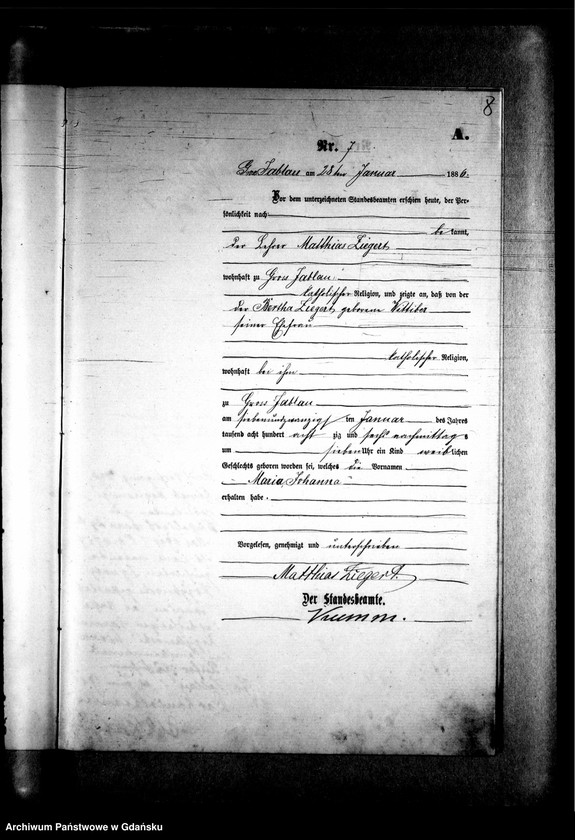 8
A.
Nr. 7
Gros Jablau am 28ten Januar 1886.
Vor dem unterzeichneten Standesbeamten erschien heute, der Per-
sönlichkeit nach
be kannt,
der Lehrer Matthias Ziegert
wohnhaft zu Gross Jablau
katholischer Religion, und zeigte an, daß von der
der Bertha Ziegert geborene
seiner Ehefrau
katholischer Religion,
wohnhaft bei ihm
zu Gross Jablau
am siebenundzwanzigsten Januar des Jahres
tausend acht hundert acht zig und sechs nachmittags
um sieben Uhr ein Kind weiblichen
Geschlechts geboren worden sei, welches die Vornamen
Maria, Johanna
erhalten habe.
Vorgelesen, genehmigt und unterschrieben
Matthias Ziegert.
Der Standesbeamte.
Archiwum Państwowe w Gdańsku